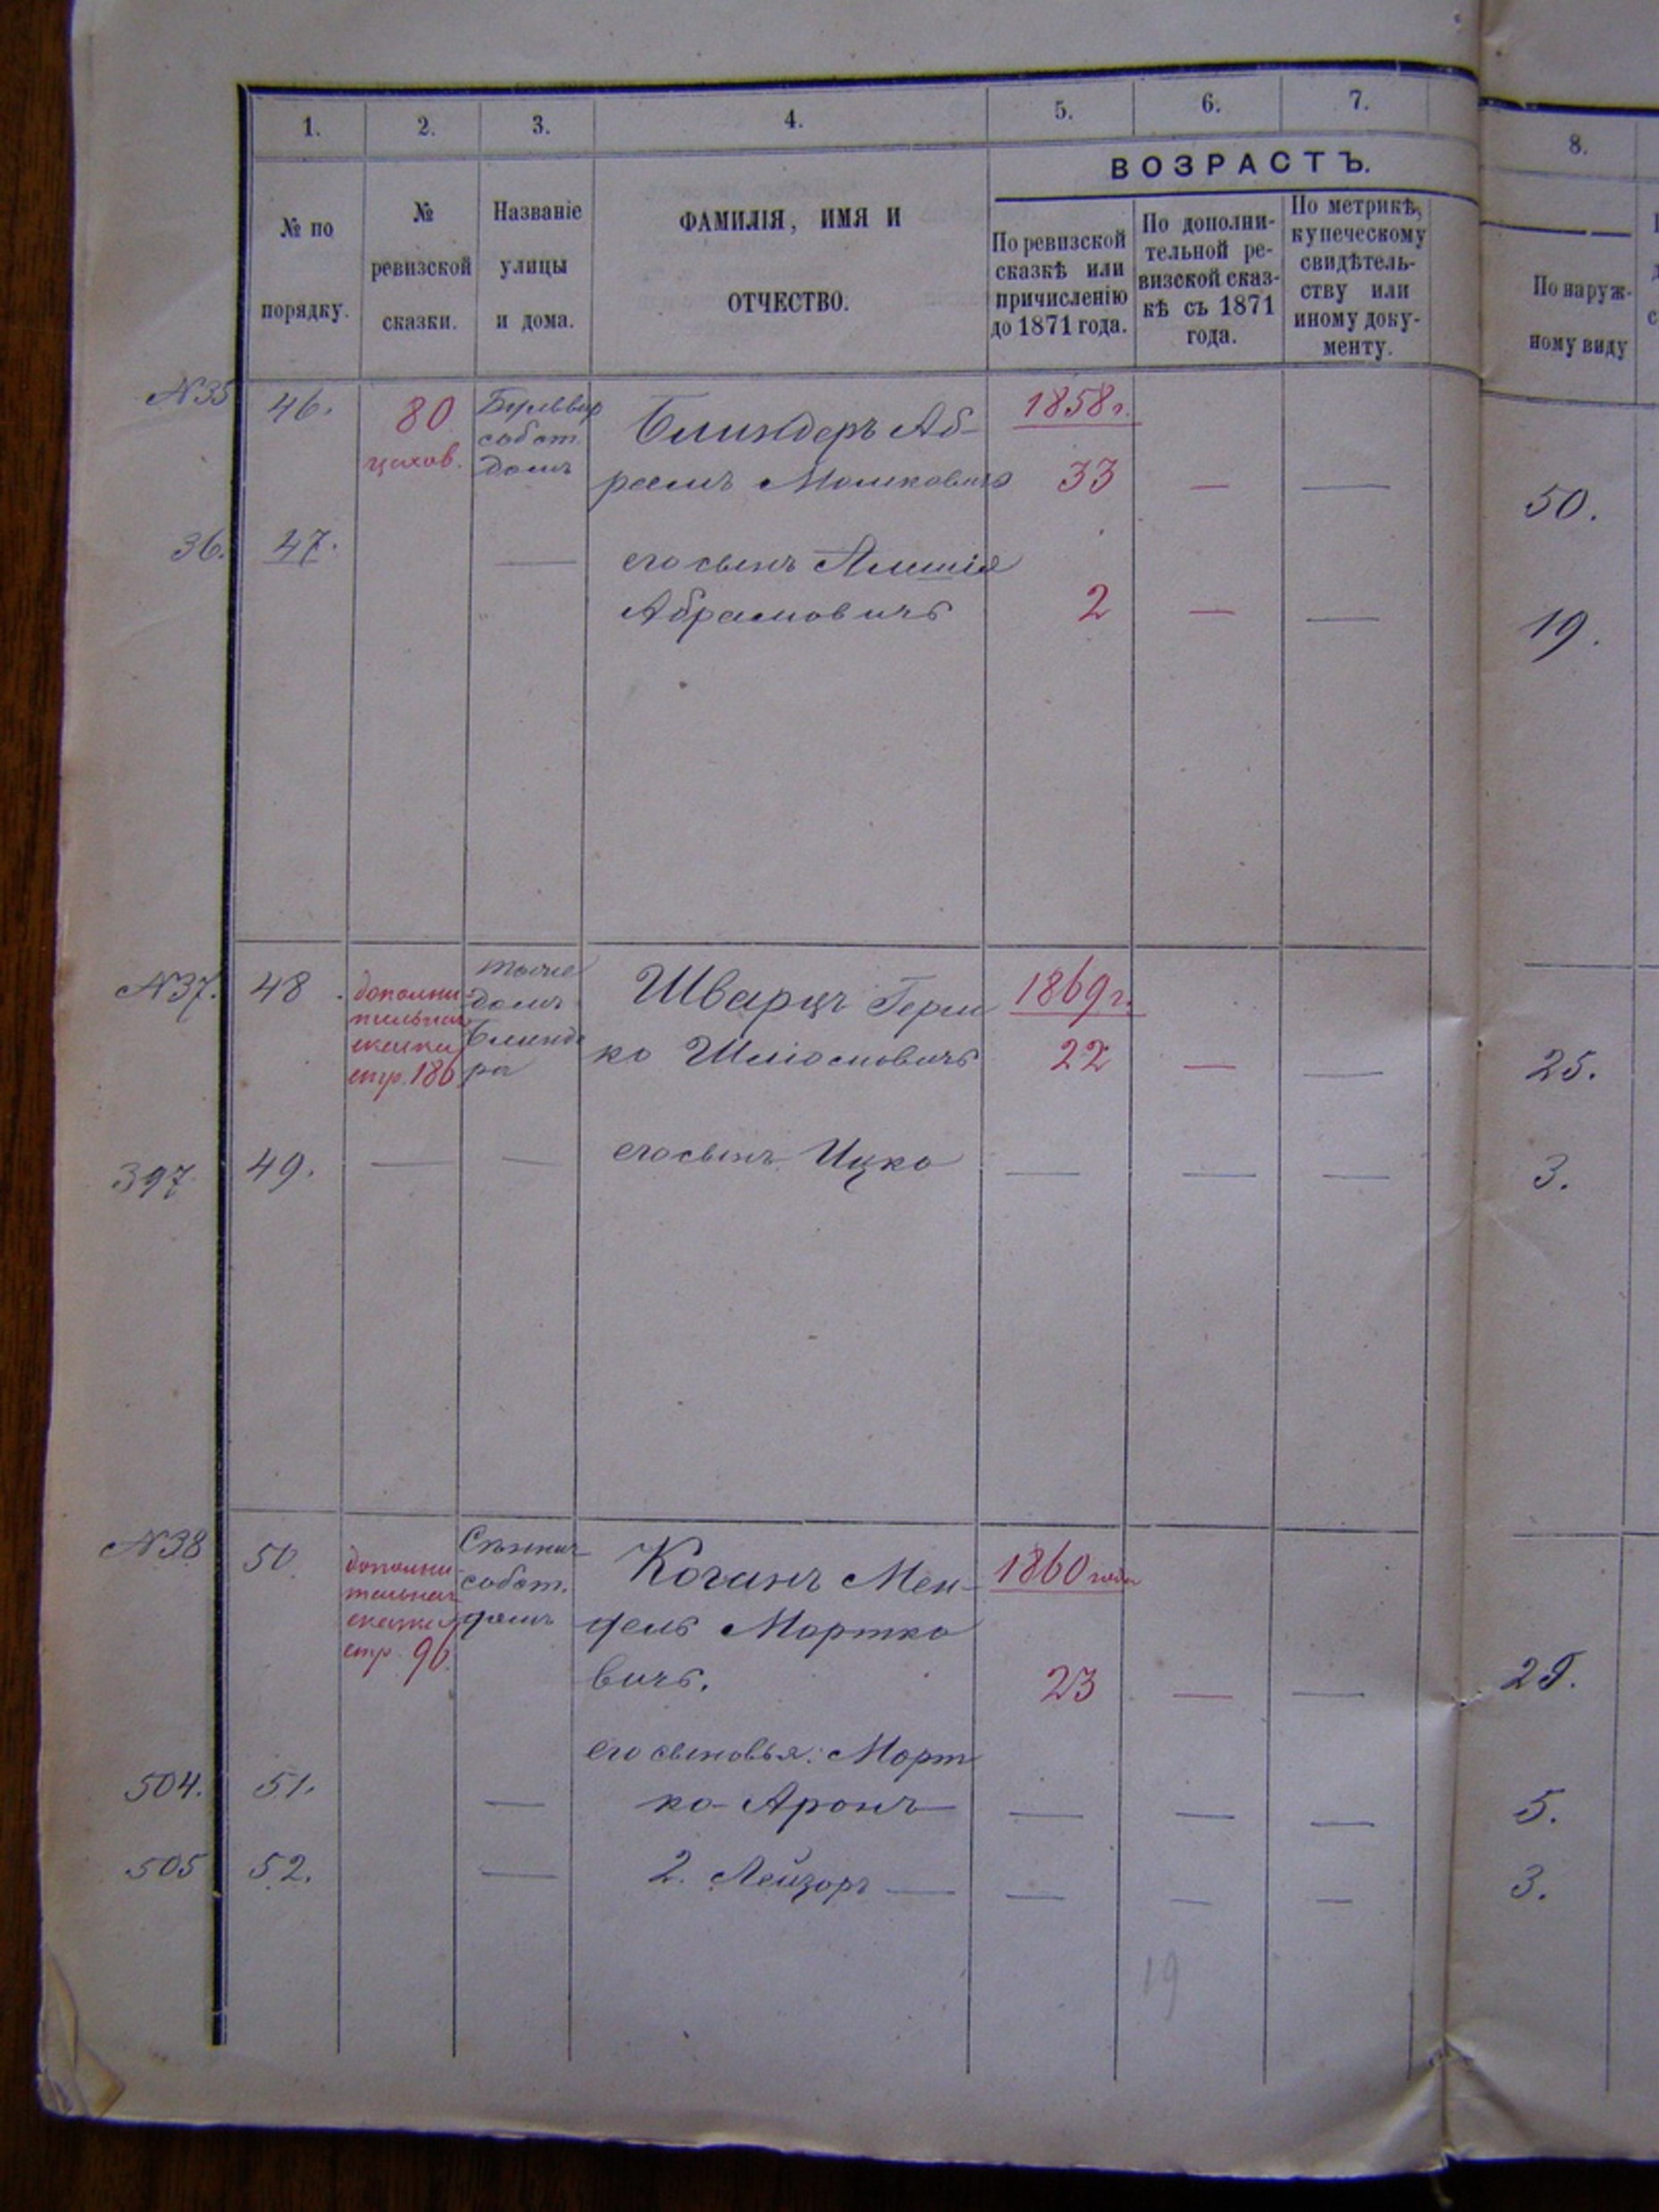 1. 2. 3. 4. 5. 6. 7. 8.
ВОЗРАСТЪ.
№ по
порядку.
№
ревизской
сказки.
Названіе
улицы
и дома.
ФАМИЛІЯ, ИМЯ И
ОТЧЕСТВО.
По ревизской
сказкѣ или
причисленію
до 1871 года.
По дополни-
тельной ре-
визской сказ-
кѣ съ 1871
года.
По метрикѣ,
купеческому
свидѣтель-
ству или
иному доку-
менту.
По наруж-
ному виду
№35
46.
80
цехов.
собст.
домъ
Блиндеръ Аб-
рамъ Мошковичъ
1858 г.
33 — —
50.
36.
47.
—
его сынъ
Абрамовичъ
2 — —
19.
№37.
48
дополни-
тельная
сказка
стр. 186
домъ
Блинде
ра
Шварцъ Герш
ко Шлiомовичъ
1869 г.
22 — —
25.
397
49. — —
его сынъ Ицко
— — —
3.
№38
50.
дополни-
тельная
сказка
стр. 96.
собст.
домъ
Коганъ Мен-
дель Мортко
вичъ.
1860 года
23 — —
его сыновья: Морт
504.
51. —
ко-Аронъ
— — —
5.
505
52. —
2. Лейзоръ —
— — —
3.
19